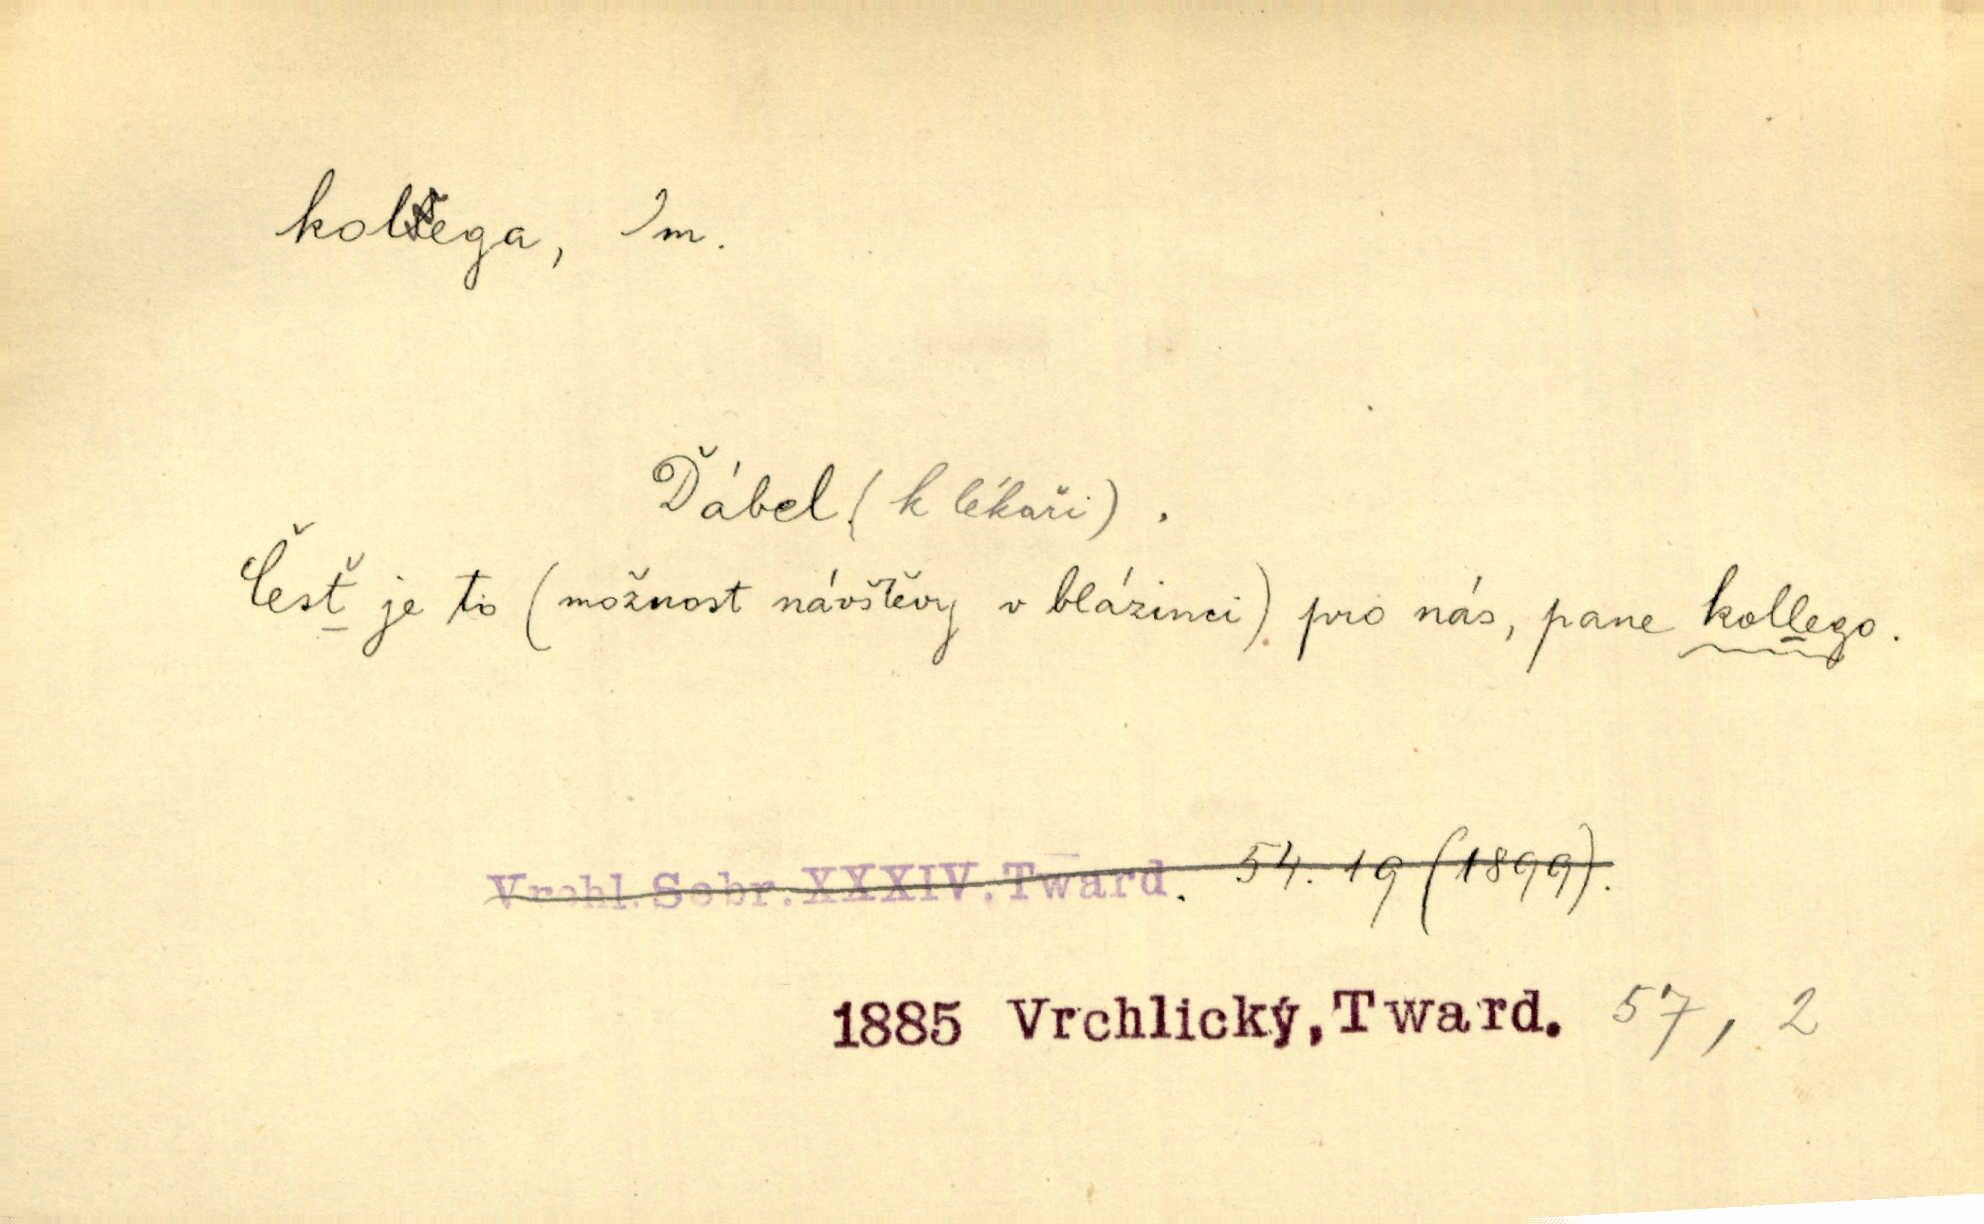 kolega, m.
Ďábel (k lékaři).
Česť je to (možnost návštěvy v blázinci) pro nás, pane kollego.
Vrchl. Sebr. XXXIV. Tward. 54. 19 (1899).
1885 Vrchlický, Tward. 57, 2